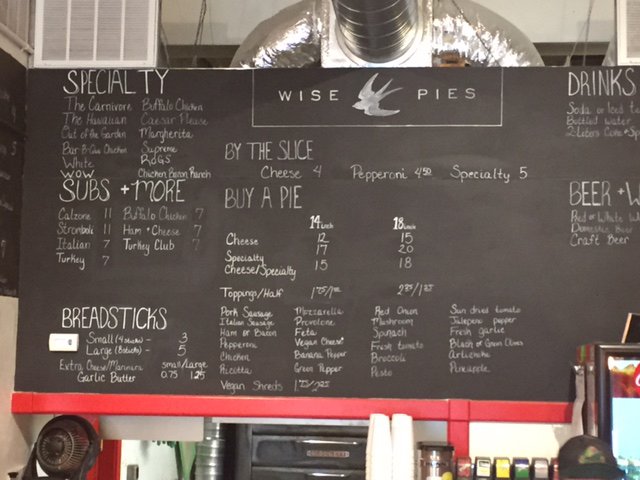 WISE PIES
SPECIALTY
The Carnivore Buffalo Chicken
The Hawaiian Caesar Please
Out of the Garden Margherita
Bar-B-Que Chicken Supreme
White RoGS
WOW Chicken Bacon Ranch
SUBS + MORE
Calzone 11 Buffalo Chicken 7
Stromboli 11 Ham + Cheese 7
Italian 7 Turkey Club 7
Turkey 7
BREADSTICKS
Small (4 sticks) - 3
Large (8 sticks) - 5
Extra Cheese/Marinara small/large
Garlic Butter 0.75 1.25
BY THE SLICE
Cheese 4 Pepperoni 4.50 Specialty 5
BUY A PIE
14 inch 18 inch
Cheese 12 15
Specialty 17 20
Cheese/Specialty 15 18
Toppings/Half
Pork Sausage Mozzarella Red Onion Sun dried tomato
Italian Sausage Provolone Mushroom Jalepeno pepper
Ham or Bacon Feta Spinach Fresh garlic
Pepperoni Vegan Cheese Fresh tomato Black or Green Olives
Chicken Banana Pepper Broccoli Artichoke
Ricotta Green Pepper Pesto Pineapple
Vegan Shreds
DRINKS
Soda or Iced
Bottled water
2-Liters Coke
BEER + W
Red or White
Domestic Beer
Craft Beer